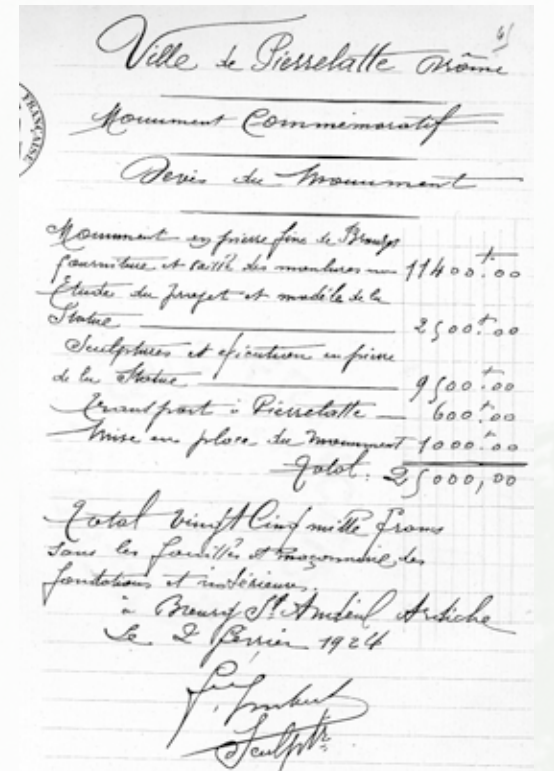 6/
Ville de Pierrelatte Drôme
FRANÇAISE
Monument Commémoratif
Devis du Monument
Monument en pierre fine de
fourniture et taille des moulures 11400f.00
Etude du projet et modèle de la
Statue 2500f.00
Sculptures et exécution en pierre
de la Statue 9500f.00
transport à Pierrelatte 600f.00
Mise en place du Monument 1000f.00
Total : 25000,00
Total Vingt Cinq mille francs
sans les fouilles et maçonnerie des
fondations et intérieures,
à Bourg St Andéol Ardèche
Le 2 février 1924
Imbert
Sculptr